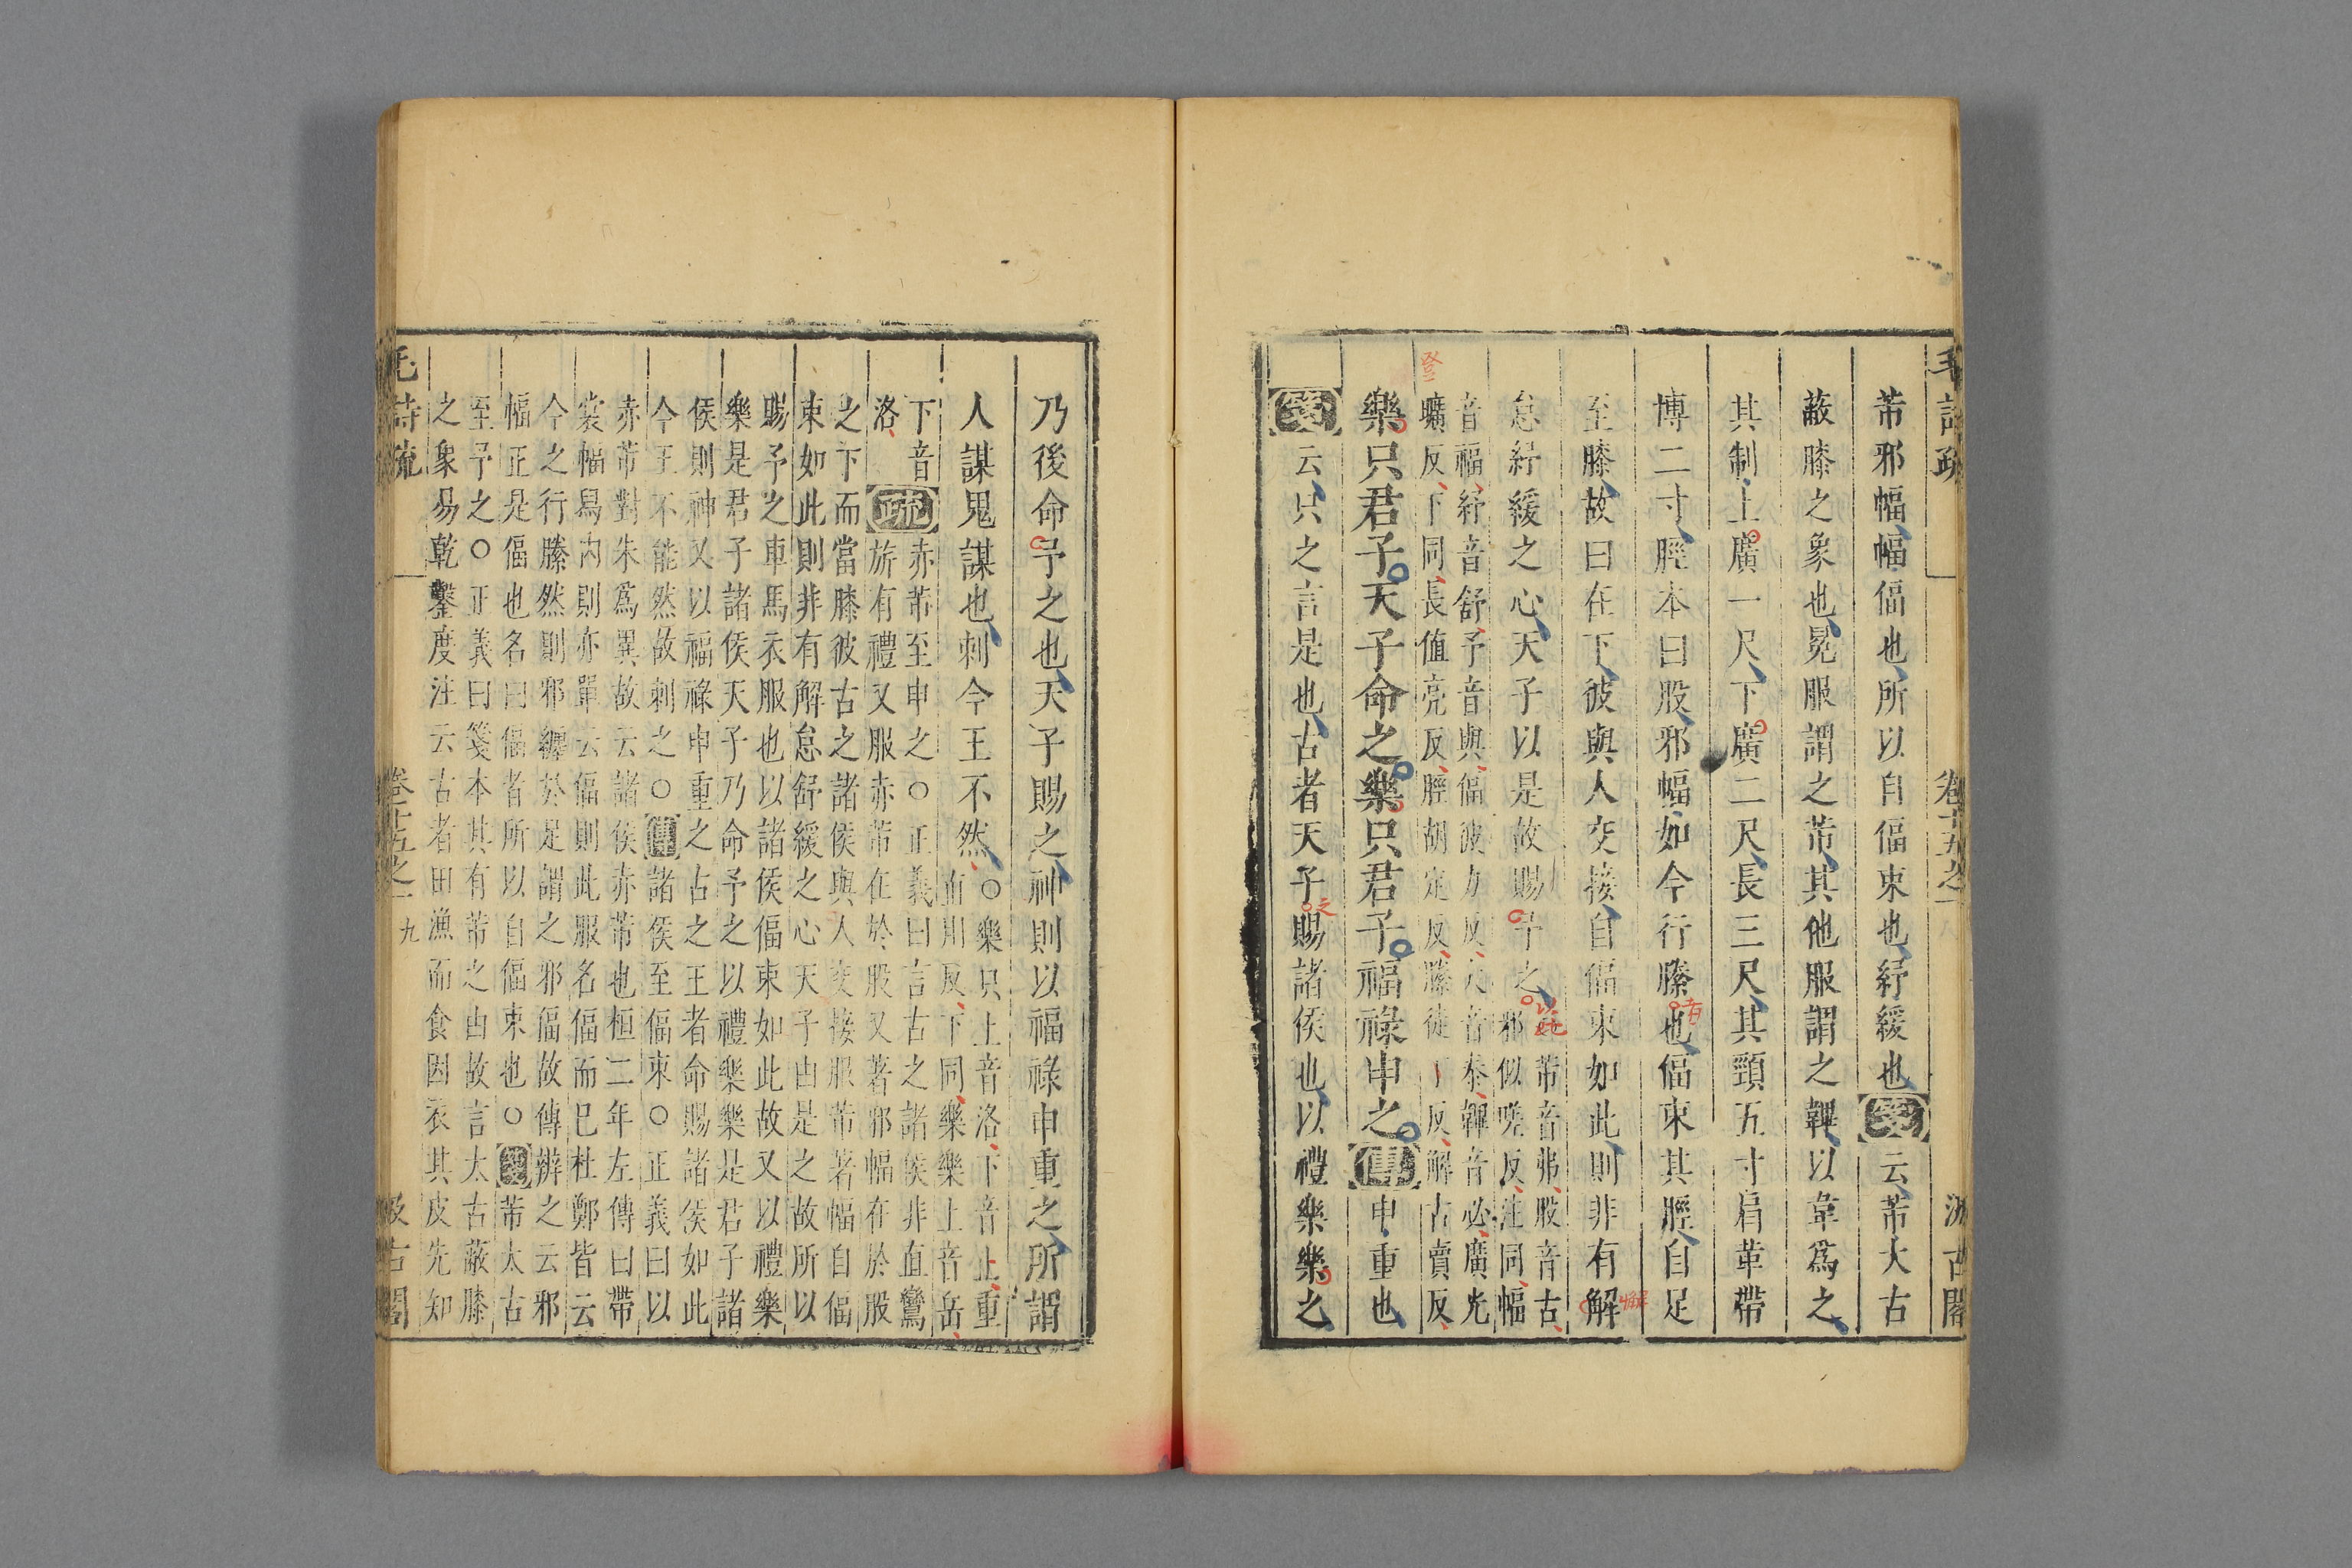 毛詩疏 卷十五之一 汲古閣
芾邪幅幅偪也所以自偪束也紓緩也箋云芾大古
蔽膝之象也冕服謂之芾其他服謂之韠以韋爲之
其制上廣一尺下廣二尺長三尺其頸五寸肩革帶
博二寸脛本曰股邪幅如今行縢也偪束其脛自足
者
至膝故曰在下彼與人交接自偪束如此則非有解
解
怠紓緩之心天子以是故賜予之
以地
芾音弗股音古
邪似嗟反注同幅
音福紓音舒予音與偪波力反大音泰韠音必廣光
登
曠反下同長值亮反脛胡定反縢徒反解古賣反
樂只君子天子命之樂只君子福祿申之傳申重也
箋云只之言是也古者天子賜諸侯也以禮樂樂之
之
乃後命予之也天子賜之神則以福祿申重之所謂
人謀鬼謀也刺今王不然
○樂只上音洛下音止重
直用反下同樂樂上音岳
下音
洛
疏
赤芾至申之○正義曰言古之諸侯非直鸞
旂有禮又服赤芾在於股又著邪幅在於股
之下而當膝彼古之諸侯與人交接服芾著幅自偪
束如此則非有解怠舒緩之心天子由是之故所以
賜予之車馬衣服也以諸侯偪束如此故又以禮樂
樂是君子諸侯天子乃命予之以禮樂樂是君子諸
侯則神又以福祿申重之古之王者命賜諸侯如此
今王不能然故刺之○傳諸侯至偪束○正義曰以
赤芾對朱爲異故云諸侯赤芾也桓二年左傳曰帶
裳幅舄內則亦單云偪則此服名偪而已杜鄭皆云
今之行縢然則邪纏於是謂之邪偪故傳辨之云邪
幅正是偪也名曰偪者所以自偪束也○箋芾太古
至予之○正義曰箋本其有芾之由故言太古蔽膝
之象易乾鑿度注云古者田漁而食因衣其皮先知
毛詩疏 卷十五之一 九 汲古閣